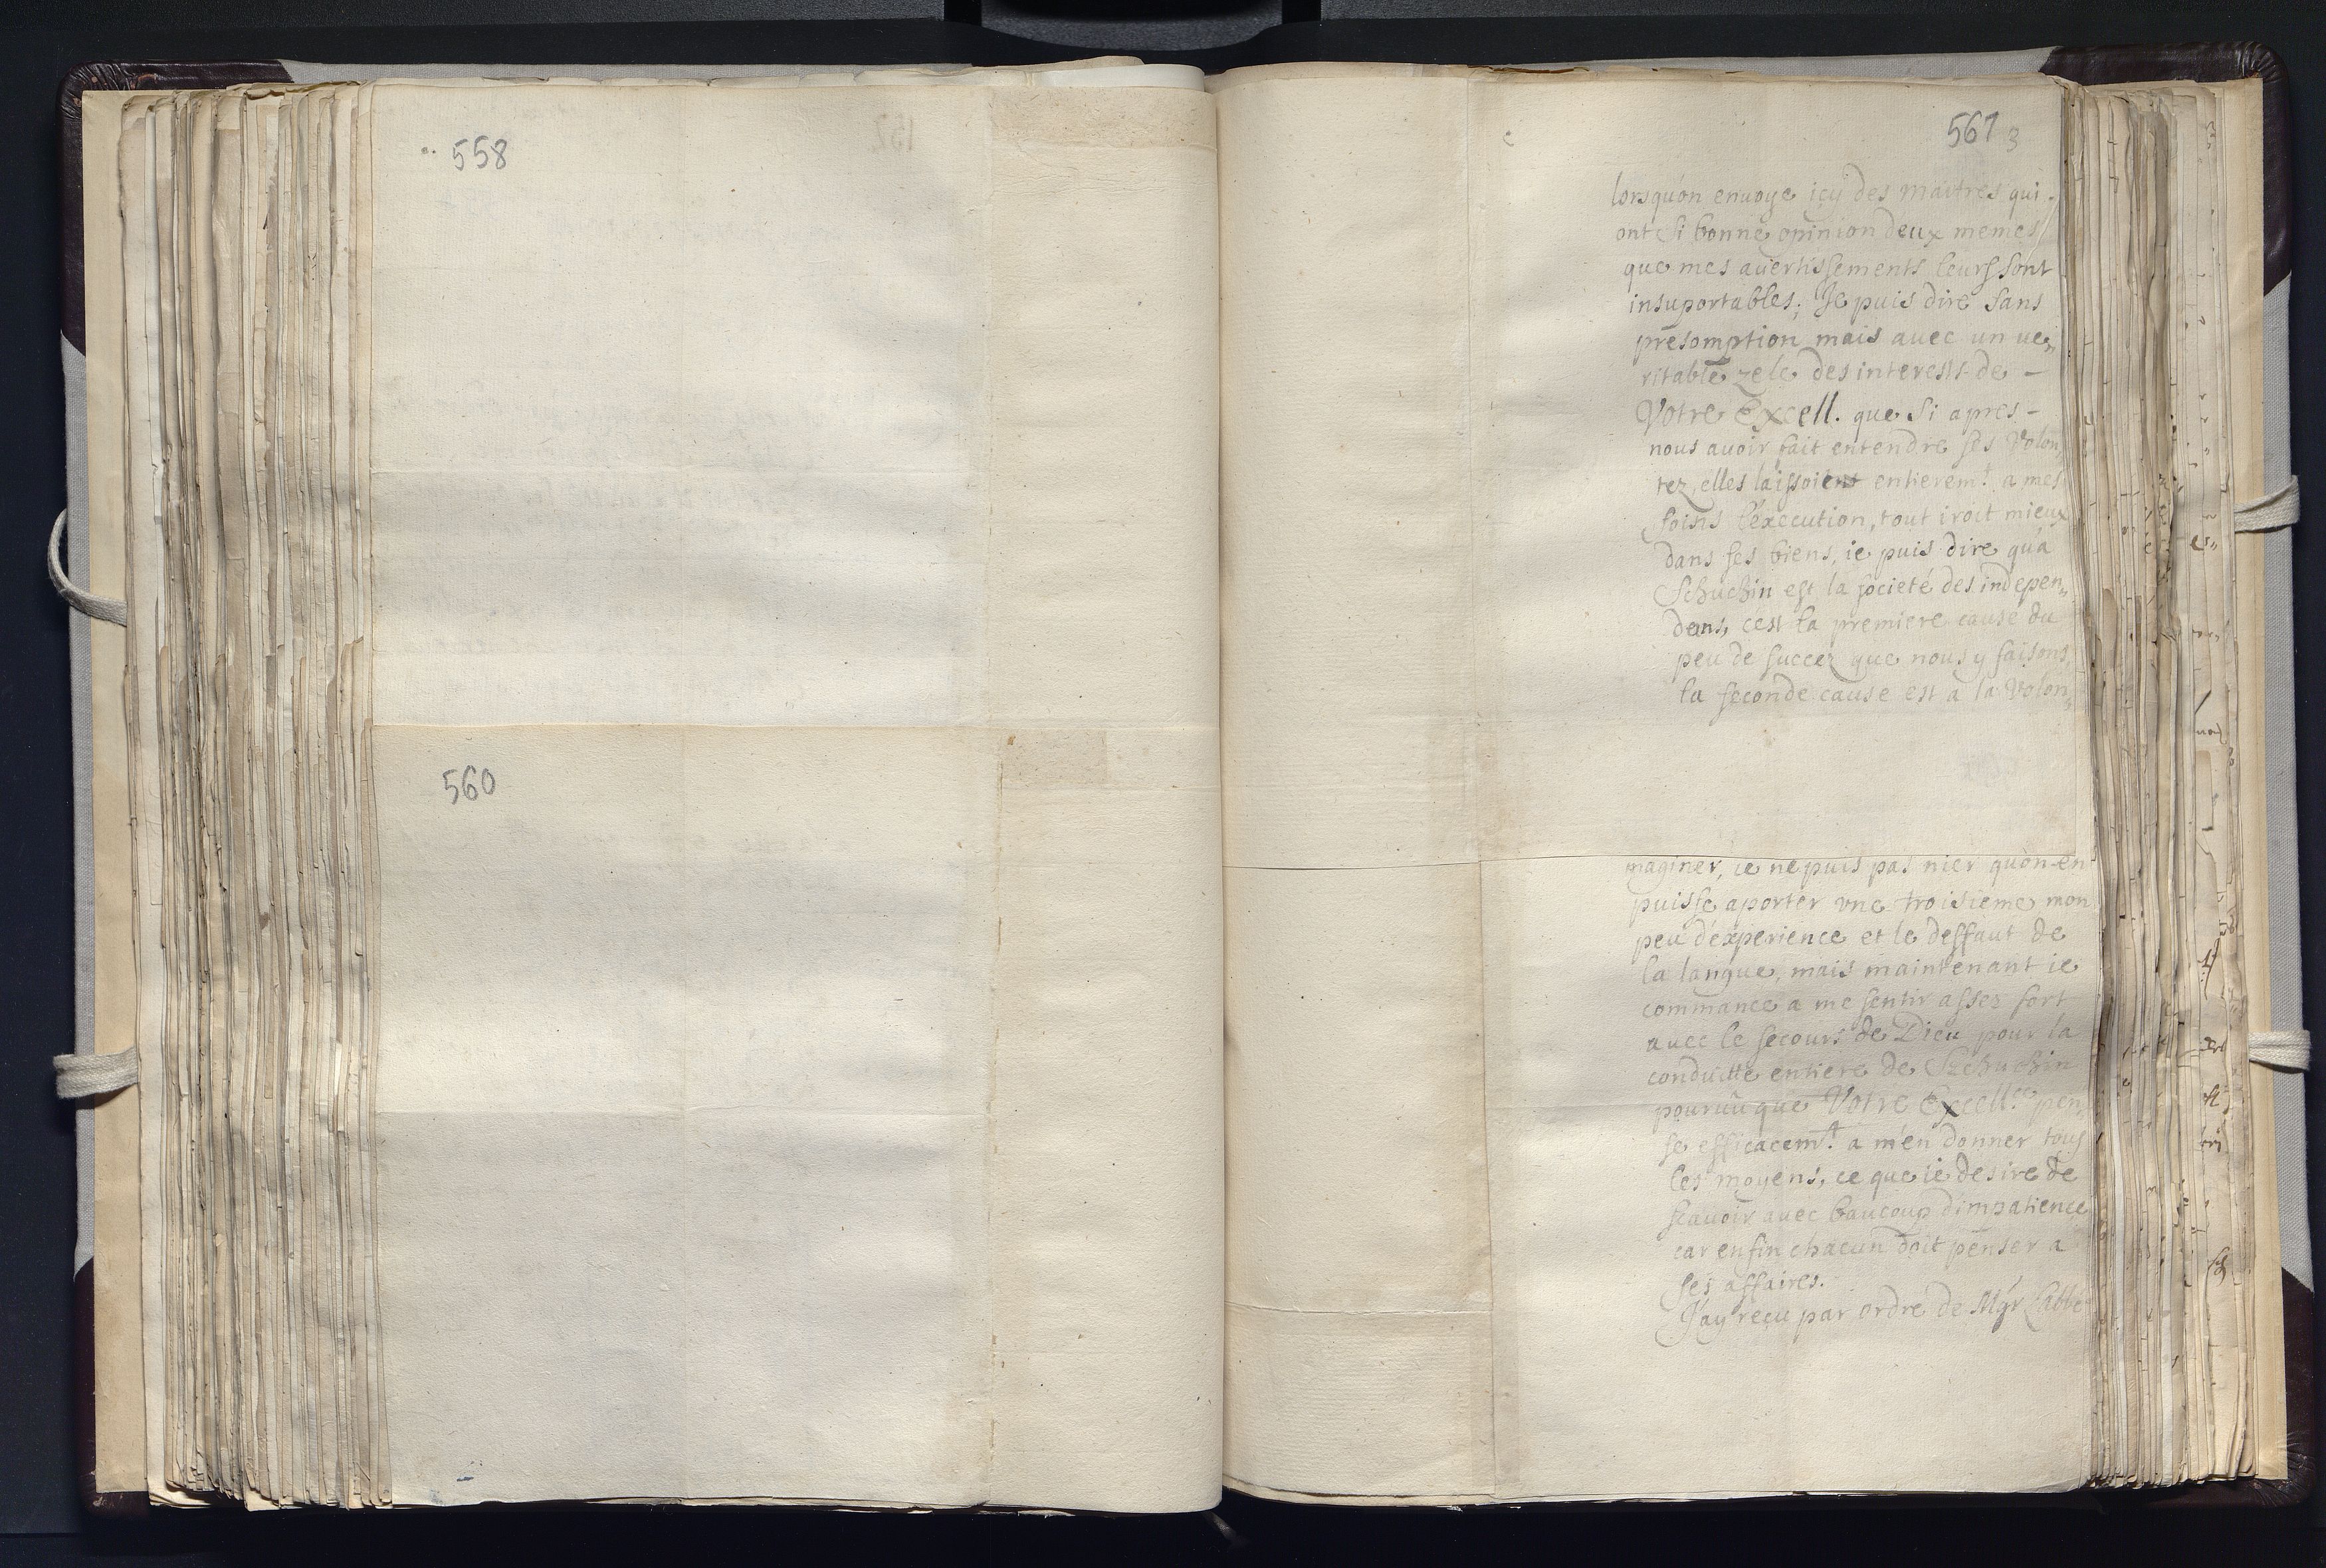 558
560
561 3
lorsqu'on enuoye içy des maîtres qui
ont si bonne opinion deux memes
que mes auertissements leurs sont
insuportables; Je puis dire sans
présomption mais avec un ue„
ritable zele des interests de –
Votre Excell. que si apres –
nous auoir fait entendre ses Volon„
tez, elles laissoient entierem.t a mes
soins l'éxecution, tout iroit mieux
dans ses biens, ie puis dire qu'a
Schuchin est la societé des indepen„
dens, c'est la premiere cause du
peu de succez que nous y faisons,
la seconde cause est a la Volon„
maginer, ie ne puis pas nier qu'on en
puisse aporter vne troisieme mon
peu d'experience et le deffaut de
la langue, mais maintenant ie
commance a me sentir assez fort
auec le secours de Dieu pour la
conduitte entiere de Szchuchin
pouruû que Votre Excell.ce pen„
se efficacem.t a m'en donner tous
les moyens, ce que ie desire de
scauoir auec baucoup d'impatience
car enfin chacun doit penser a
ses affaires.
J'ay reçu par ordre de Mgr l'abbé